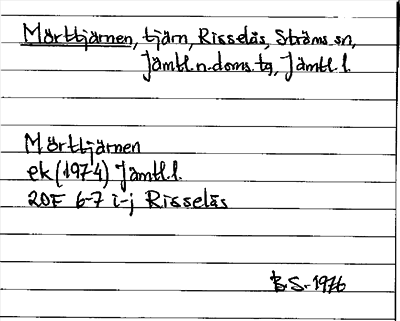 Mörttjärnen, tjärn, Risselås, Ströms sn,
Jämtl.n.doms.tg, Jämtl.l.
Mörttjärnen
ek (1974) Jämtl.l.
20F 6-7 i-j Risselås
B.S. 1976